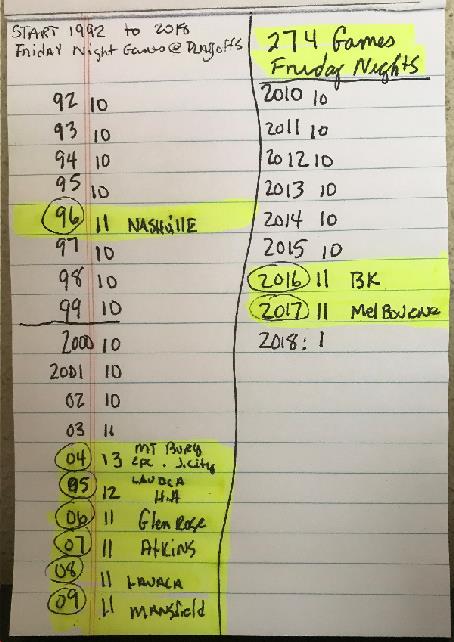 START 1992 to 2018
Friday Night Games @ Playoffs
92 10
93 10
94 10
95 10
96 11 NASHVILLE
97 10
98 10
99 10
2000 10
2001 10
02 10
03 11
04 13 MT BURG
J.City
05 12 LAVACA
H.A
06 11 Glen Rose
07 11 ATKINS
08 11 LAVACA
09 11 MANSField
274 Games
Friday Nights
2010 10
2011 10
2012 10
2013 10
2014 10
2015 10
2016 11 BK
2017 11 MelBOURNE
2018: 1